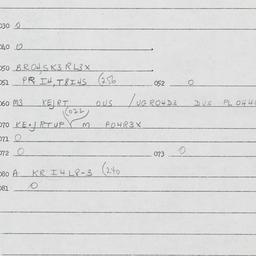 030 0
040 0
050 BRO4SK3RL3X
051 PR I4,T8I4S (250 052 0
060 M3 KEJRT OUS / UGRO4D3 DUS PLO44
(022
070 KE-JRTUP M PO4R3X
071 0
072 0 073 0
080 A KR I4LP-3 (240
081 0